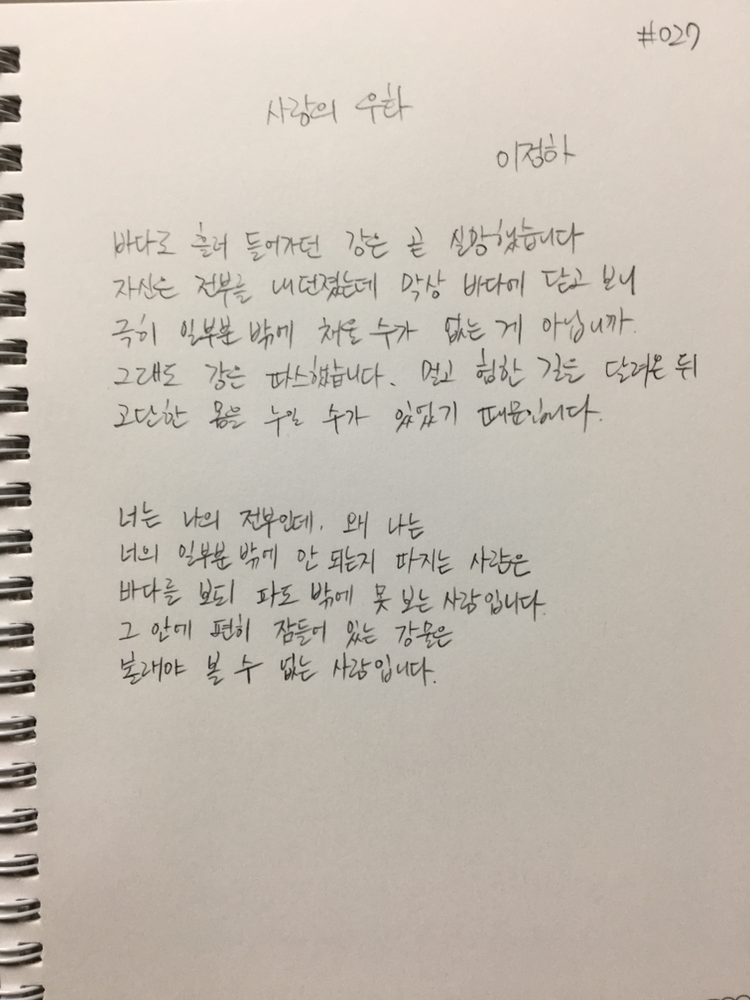 #027
사랑의 우화
이정하
바다로 흘러 들어가던 강은 곧 실망했습니다
자신은 전부를 내던졌는데 막상 바다에 닿고 보니
극히 일부분 밖에 채울 수가 없는 게 아닙니까.
그래도 강은 따스했습니다. 멀고 험한 길을 달려온 뒤
고단한 몸을 누일 수가 있었기 때문입니다.
너는 나의 전부인데, 왜 나는
너의 일부분 밖에 안 되는지 따지는 사람은
바다를 보되 파도 밖에 못 보는 사람입니다.
그 안에 편히 잠들어 있는 강물은
볼래야 볼 수 없는 사람입니다.